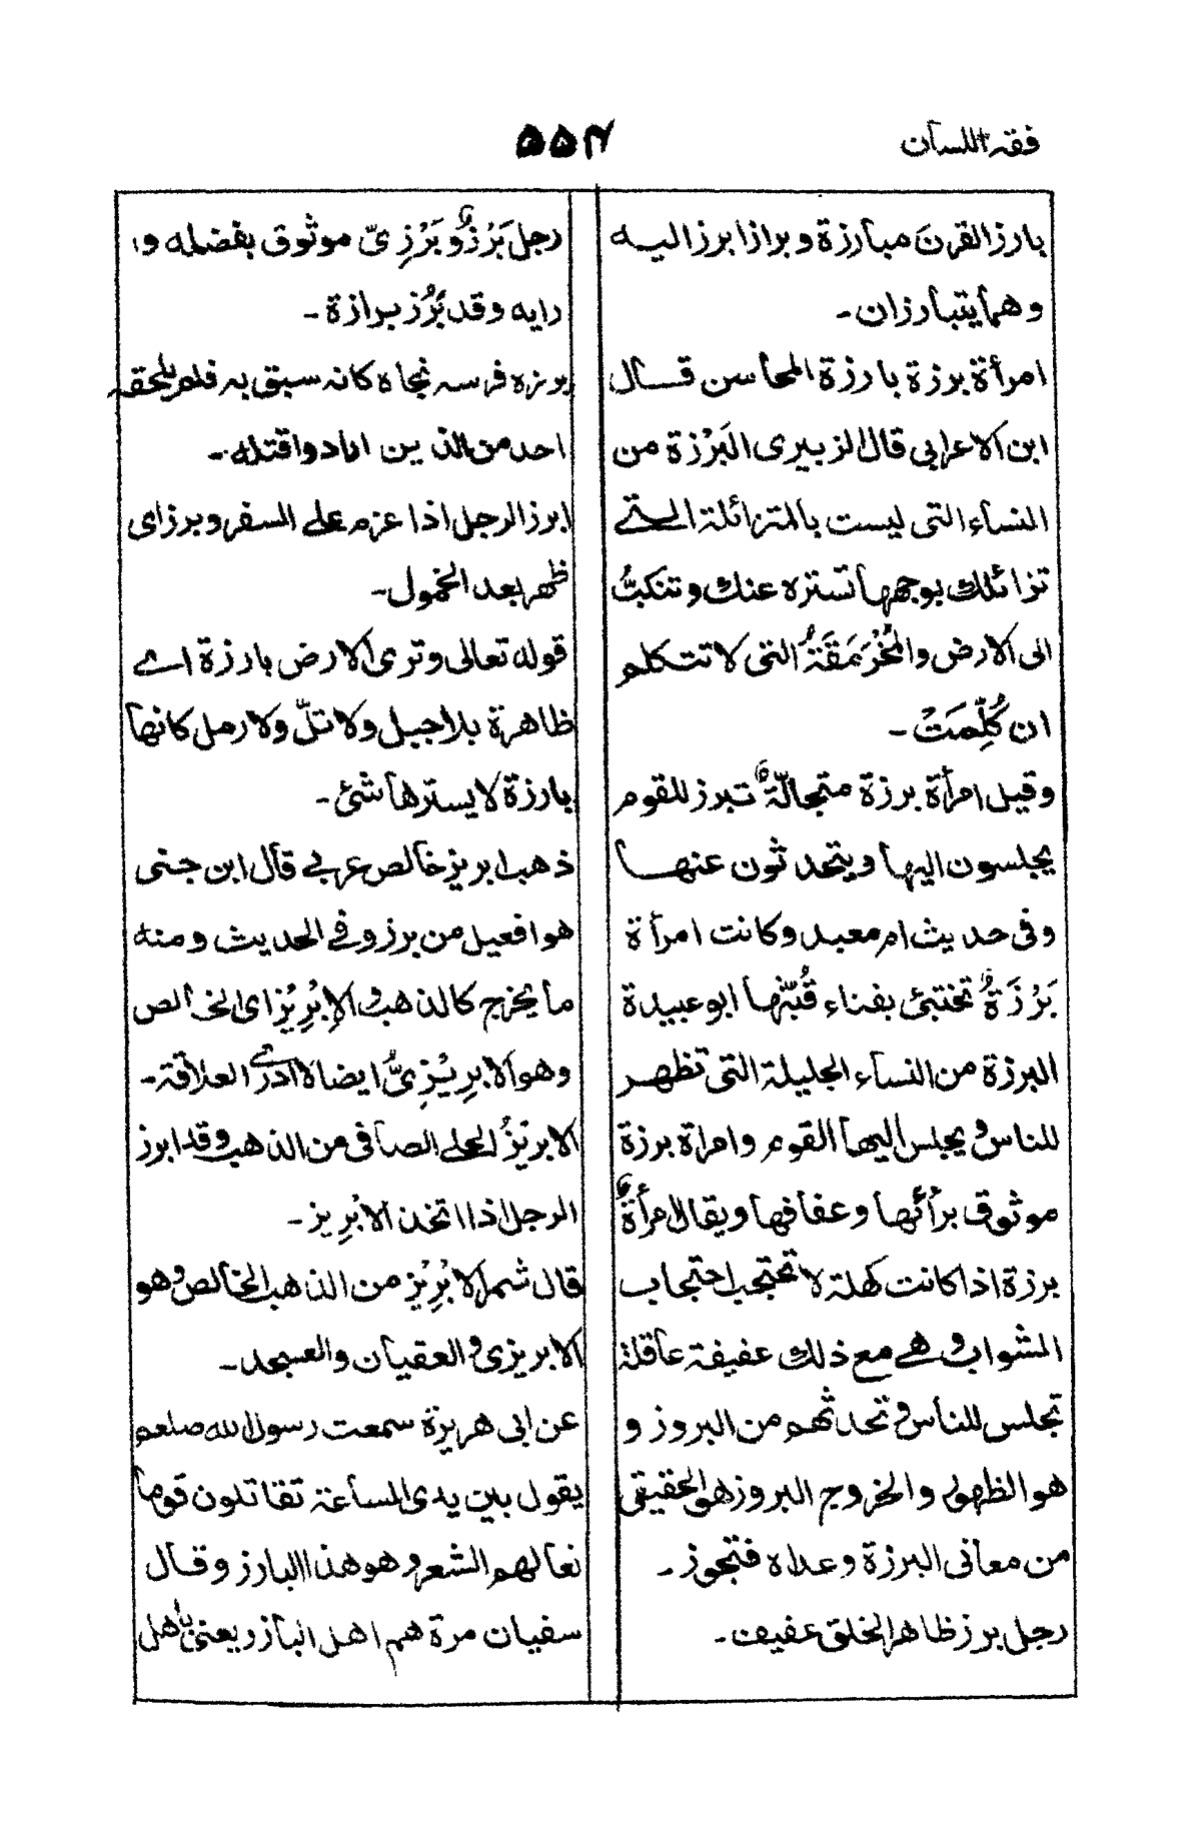 فقه اللسان
۵۵۴
بارز القرن مبارزة وبرازا برز اليه
وهما يتبارزان۔
امرأة برزة بارزة المحاسن قال
ابن الاعرابي قال الزبيرى البَرْزة من
النساء التى ليست بالمتزائلة التى
تزائلك بوجهها تستره عنك وتنكبُّ
الى الارض والمُخْرَمَقَةُ التى لا تتكلم
ان كُلِّمَتْ۔
وقيل امرأة برزة متجالّةٌ تبرز للقوم
يجلسون اليها ويتحدثون عنها
وفى حديث ام معبد وكانت امرأة
بَرْزَةٌ تختبئ بفناء قُبّتها ابو عبيدة
البرزة من النساء الجليلة التى تظهر
للناس ويجلس اليها القوم وامراة برزة
موثوق برأئها وعفافها ويقال امرأةٌ
برزة اذا كانت كهلة لا تحتجب احتجاب
الشواب وهى مع ذلك عفيفة عاقلة
تجلس للناس وتحدثهم من البروز و
هو الظهور والخروج البروز هو الحقيقى
من معانى البرزة وعداه فتجوز۔
رجل برز ظاهر الخلق عفيف۔
رجل بَرْزٌ وبَرْزِىّ موثوق بفضله و
رايه وقد بَرُز برازة۔
برزه فرسه نجاه كانه سبق به فلم يلحقه
احد من الذين ارادوا قتله۔
ابرز الرجل اذا عزم على السفر وبرز اى
ظهر بعد الخمول۔
قوله تعالى وترى الارض بارزة اى
ظاهرة بلا جبل ولا تلّ ولا رمل كانها
بارزة لا يسترها شئ۔
ذهب ابريز خالص عربى قال ابن جنى
هو افعيل من برز وفى الحديث ومنه
ما يخرج كالذهب الاِبْرِيْز اى الخالص
وهو الابرِيْزِىُّ ايضا لا ادرى العلاقة۔
الابريزُ الحلى الصافى من الذهب وقد ابرز
الرجل اذا اتخذ الابْرِيز۔
قال شمر الابْرِيْز من الذهب الخالص وهو
الابريزى والعقيان والعسجد۔
عن ابى هريرة سمعت رسول الله صلعم
يقول بين يدى الساعة تقاتلون قوما
نعالهم الشعر وهو هذا البارز وقال
سفيان مرة هم اهل البازر يعنى باهل